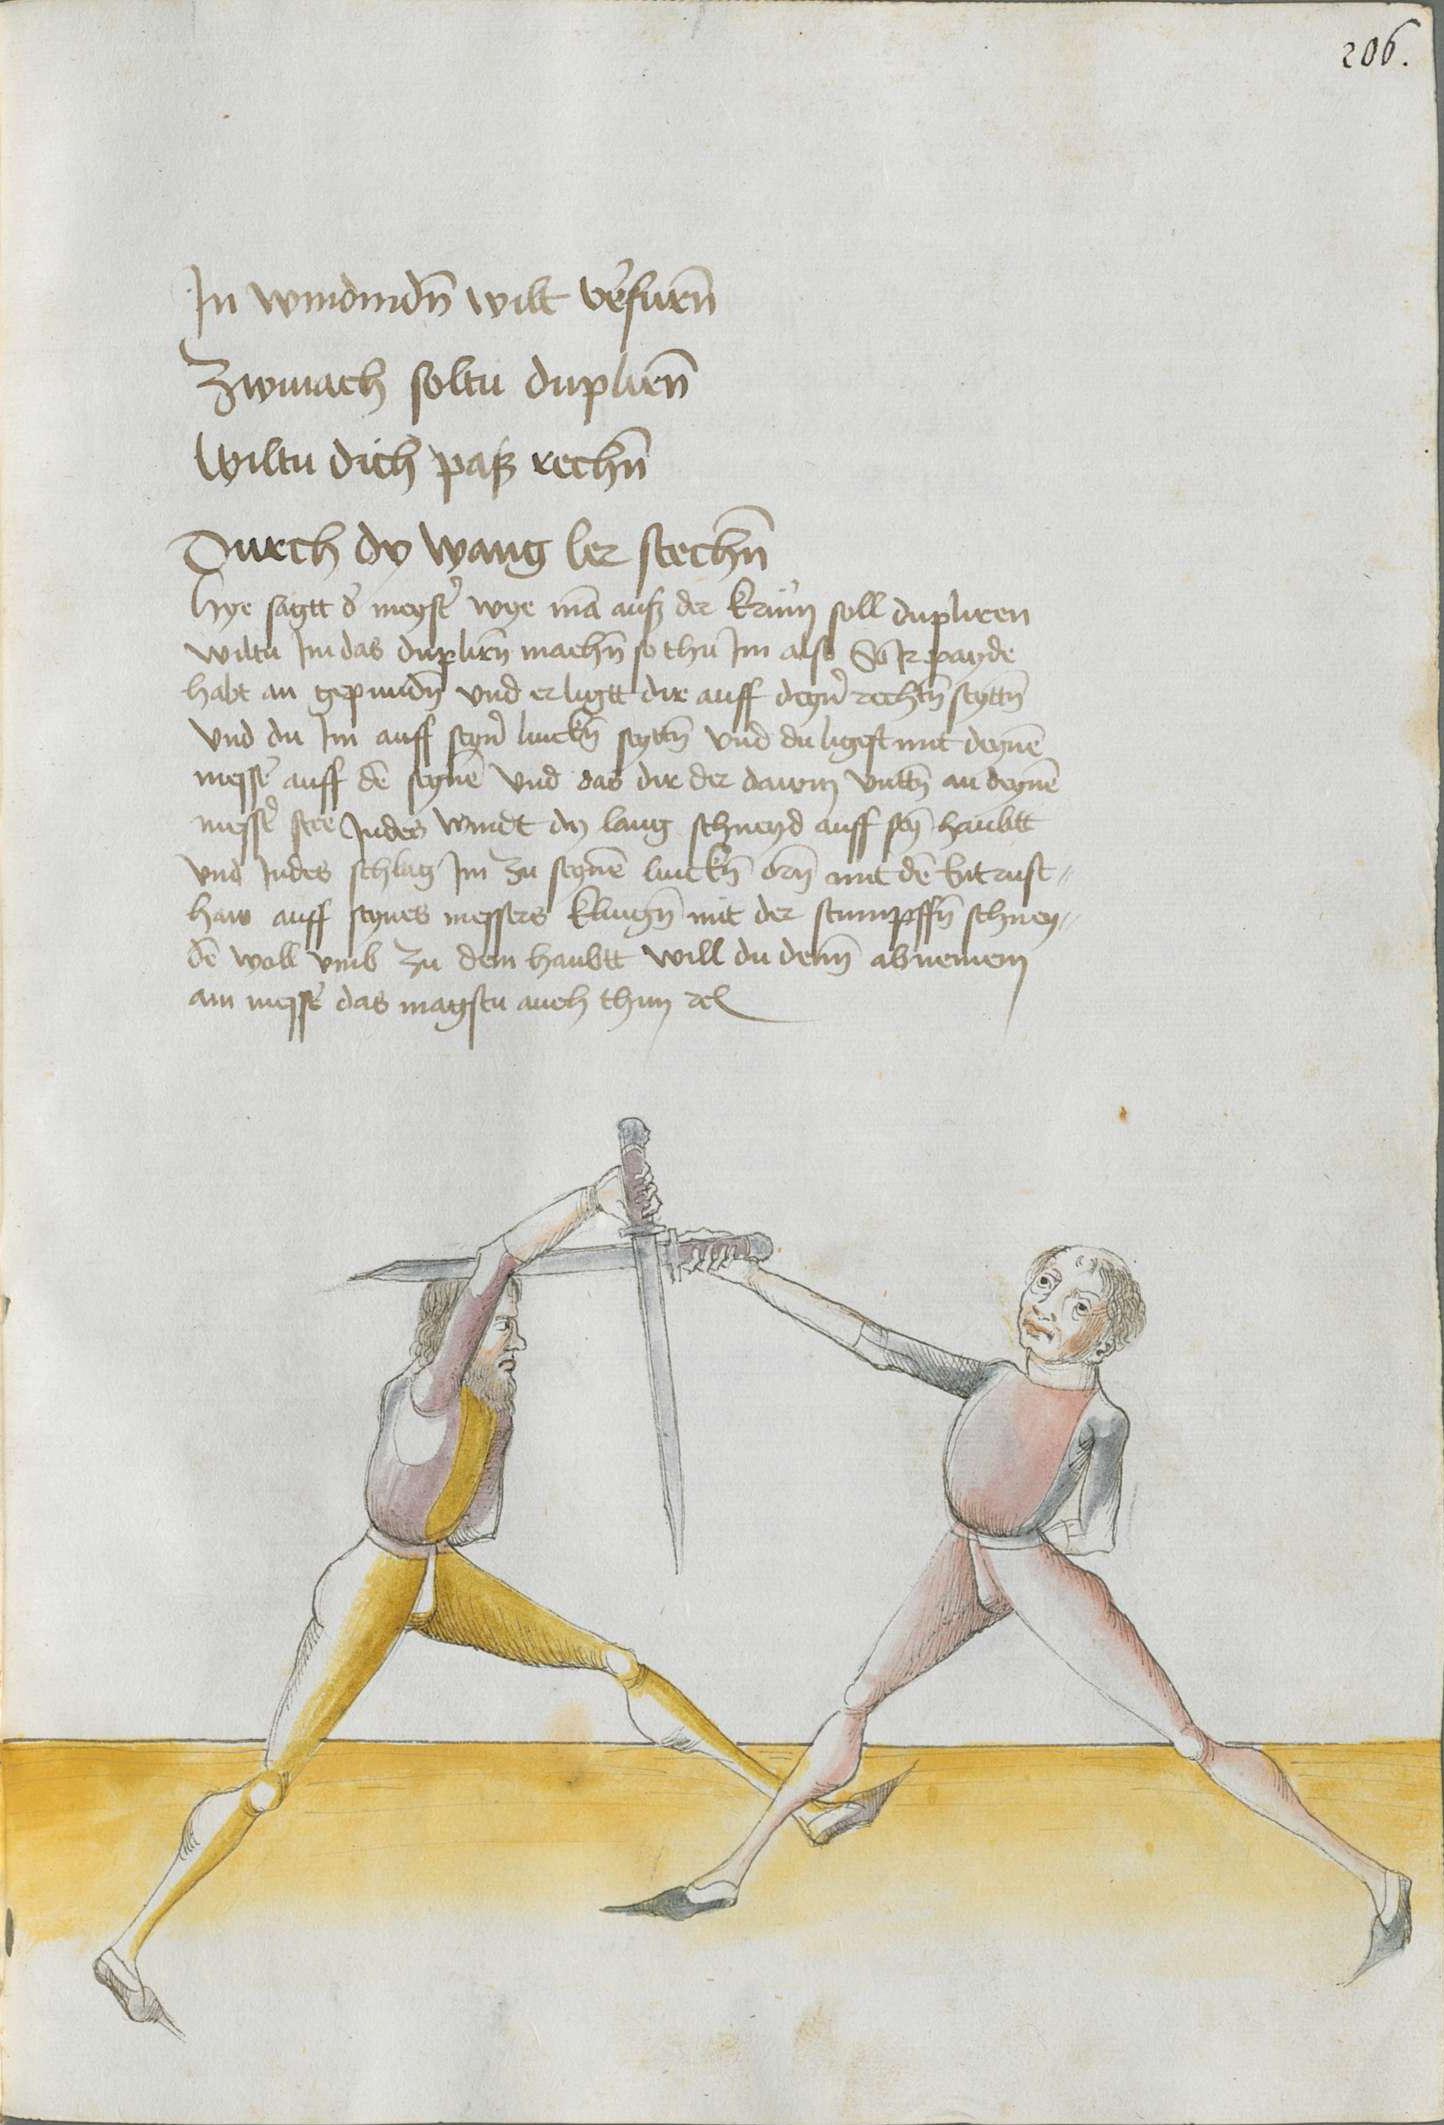 206.
In windnidn̄ wilt v̾efurn̄
Zwinach soltu duplirn̄
Wiltu dich paß rechn̄
Durch dy wang ler stechn̄
Hye sagtt d̾ meyst̾ wye mā auß der krūm soll dupliren
wiltu Im das duplirn̄ machn̄ so thu Im also So Ir payde
habt an gepundn̄ und er ligtt dir auff deyn̾ rechtn̄ seyttn̄
Und du Im auff seyn̾ linckn̄ seyttn̄ Und du ligest mit deynē
messe̾ auff dē seynē Und das dir der dawm̄ Untn̄ an deynē
messe̾ stee Indes windt dy lang schneyd auff sey̅ haubtt
Und Indes schlag Im zu seynē linckn̄ orn̄ mit dē Entrust-
haw auff seynes messers klingn̄ mit der stumpffn̄ schney-
dē woll umb zu dem haubtt will du denn̄ abnemem
am messe̾ das magstu auch thun ⁊c